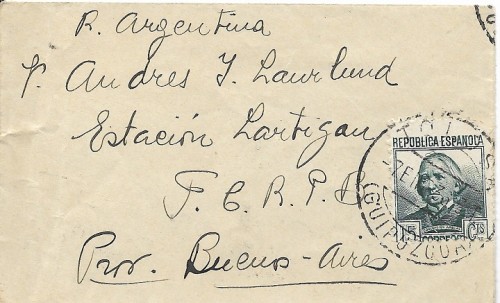 R. Argentina
Sr. Andres J. Laurlund
Estación Lartigau
F. C. R. P. B
Prov. Buenos-Aires
TOLOSA
REPUBLICA ESPAÑOLA
15 CTS
CORREOS
(GUIPUZCOA)